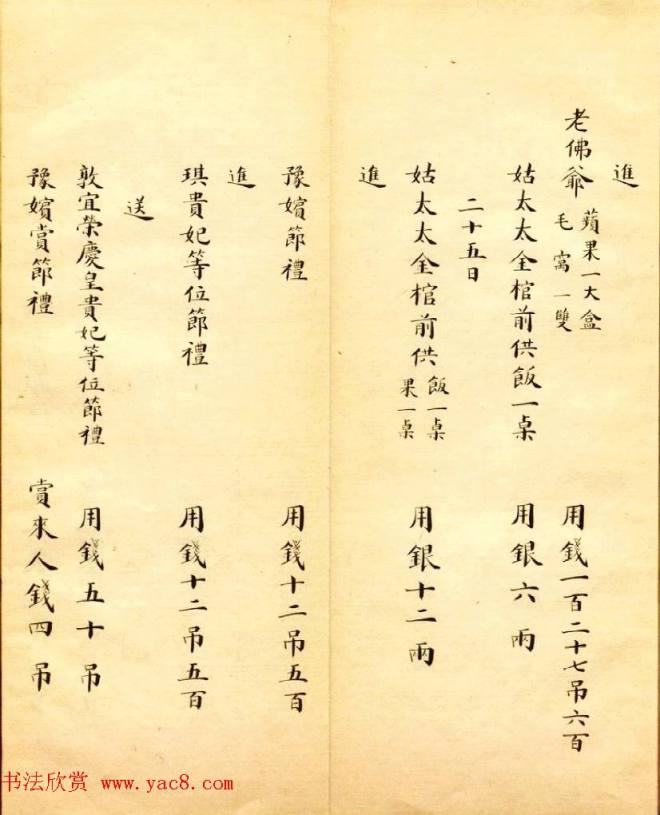 進
老佛爺 蘋果一大盒 毛窩一雙 用錢一百二十七吊六百
姑太太全棺前供飯一桌 用銀六兩
二十五日
姑太太全棺前供飯一桌 果一桌 用銀十二兩
進
豫嬪節禮 用錢十二吊五百
進
琪貴妃等位節禮 用錢十二吊五百
送
敦宜榮慶皇貴妃等位節禮 用錢五十吊
豫嬪賞節禮 賞來人錢四吊
书法欣赏 www.yac8.com